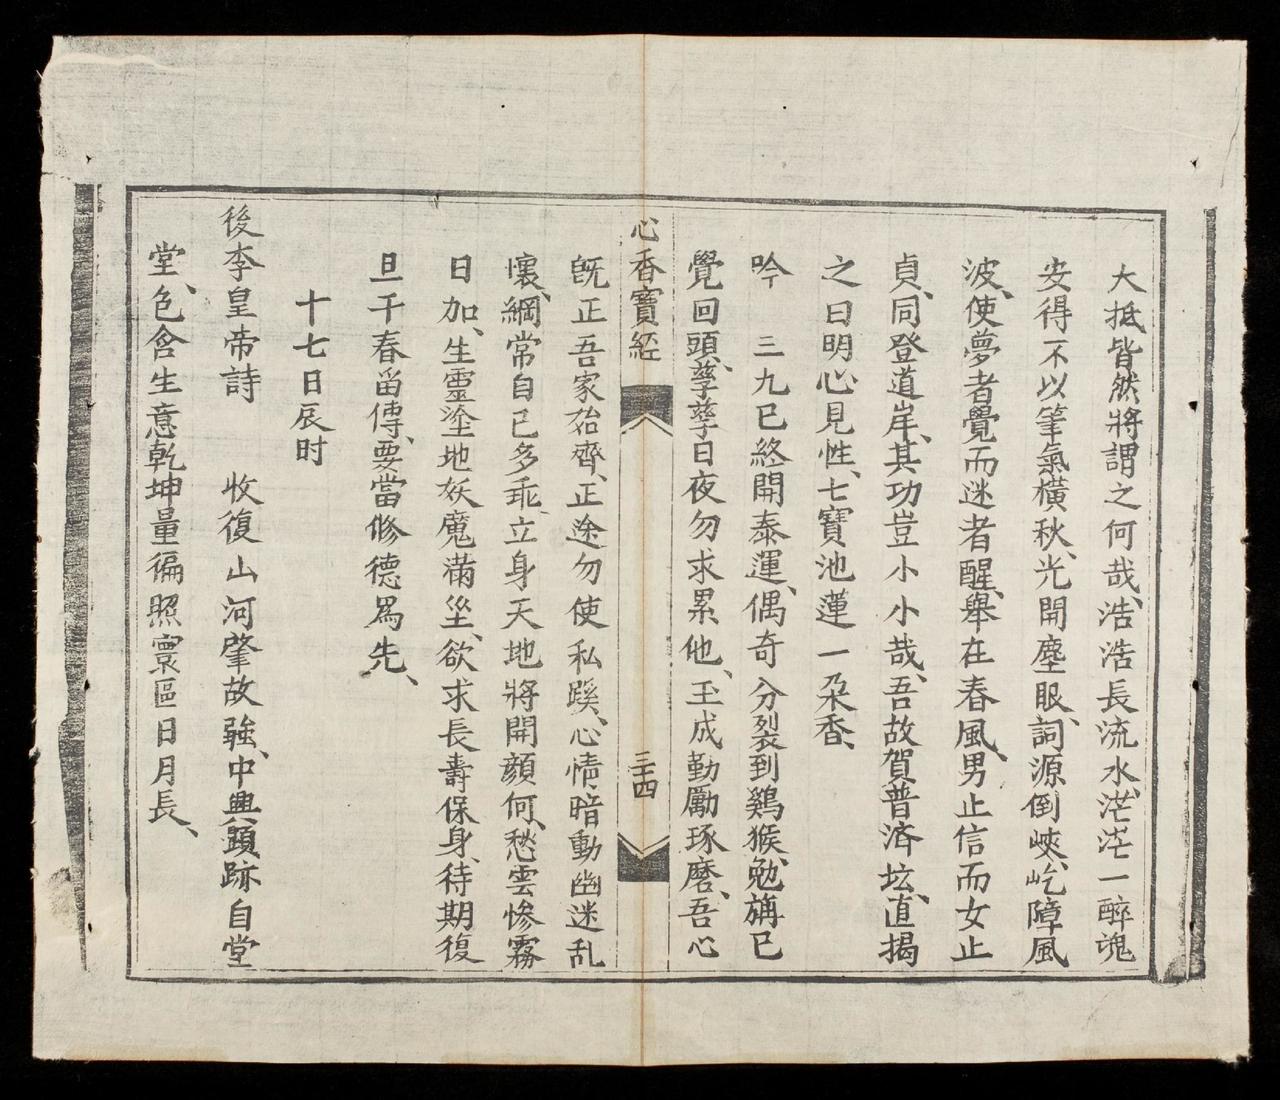 大抵皆然將謂之何哉、浩浩長流水、茫茫一醉魂
安得不以筆氣橫秋、光開塵眼、詞源倒峽、屹障風
波、使夢者覺而迷者醒、舉在春風、男止信而女止
貞、同登道岸、其功豈小小哉、吾故賀普濟坛、直揭
之曰明心見性、七寶池蓮一朶香、
吟　三九已終開泰運、偶奇分裂到鷄猴、勉旃已
覺回頭、孳孳日夜勿求累他、玉成勤勵琢磨、吾心
心香寶經
三十四
既正吾家始齊、正途勿使私蹊、心情暗動幽迷乱
懷、綱常自已多乖、立身天地將開顔何、愁雲慘霧
日加、生靈塗地妖魔滿坐、欲求長壽保身、待期復
旦千春畱傳、要當修德爲先、
十七日辰时
後李皇帝詩　收復山河肇故強、中興顕跡自堂
堂、色含生意乾坤量徧照寰區日月長、